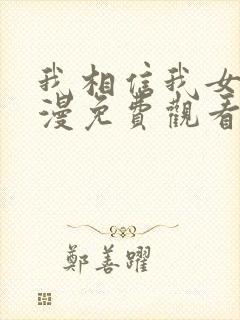 我相信我女
漫免費觀看
鄭善躍